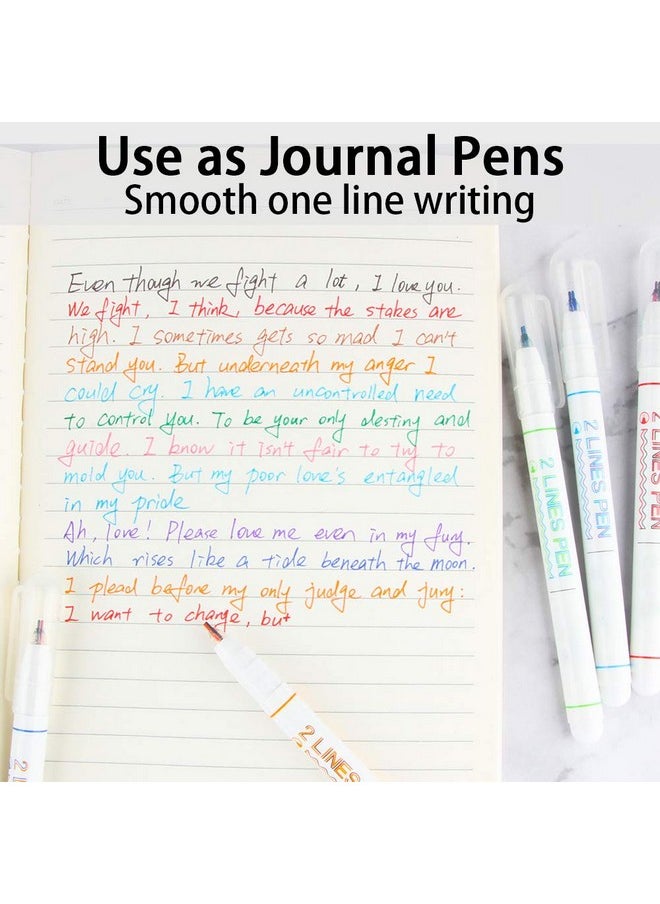 Use as Journal Pens
Smooth one line writing
Even though we fight a lot, I love you.
We fight, I think, because the stakes are
high. I sometimes gets so mad I can't
stand you. But underneath my anger I
could cry. I have an uncontrolled need
to control you. To be your only destiny and
guide. I know it isn't fair to try to
mold you. But my poor love's entangled
in my pride
Ah, love! Please love me even in my fury.
Which rises like a tide beneath the moon.
I plead before my only judge and jury:
I want to change, but
2 LINES PEN
2 LINES PEN
2 LINES PEN
2 LINES
2 L